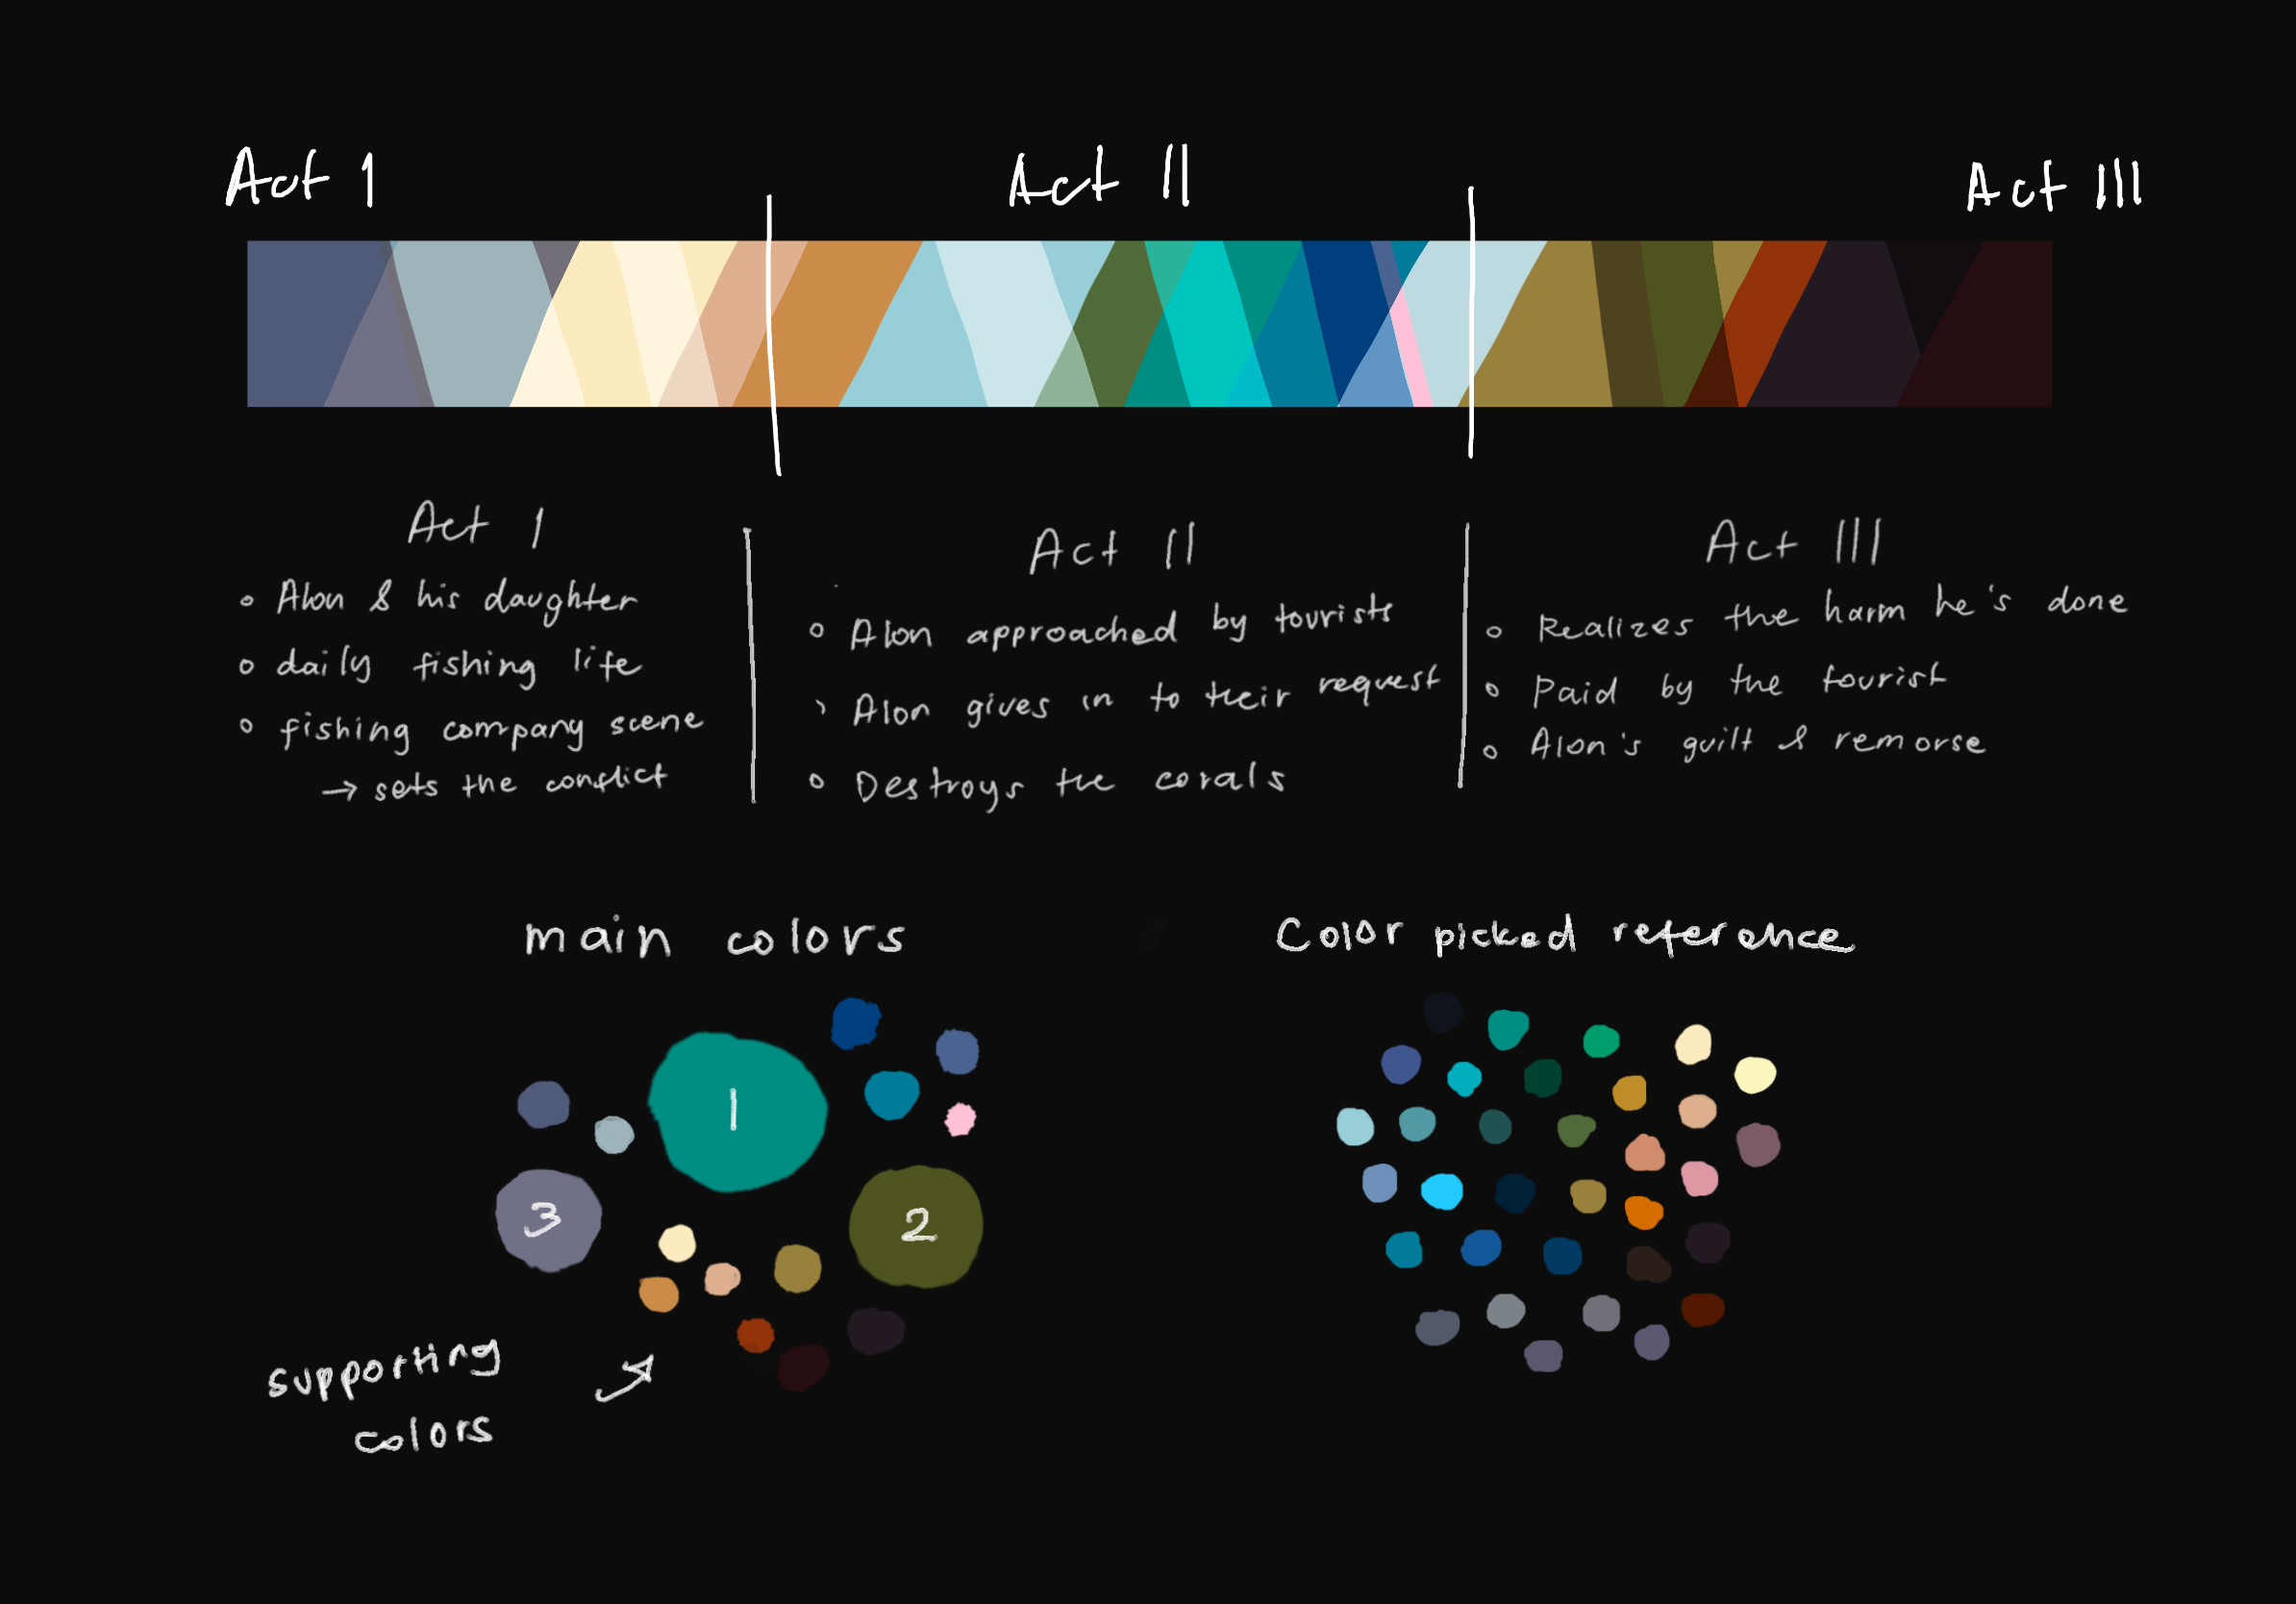 Act I
Act II
Act III
Act I
Alon & his daughter
daily fishing life
fishing company scene
→ sets the conflict
Act II
Alon approached by tourists
Alon gives in to their request
Destroys the corals
Act III
Realizes the harm he's done
Paid by the tourist
Alon's guilt & remorse
main colors
1
2
3
supporting
colors
Color picked reference